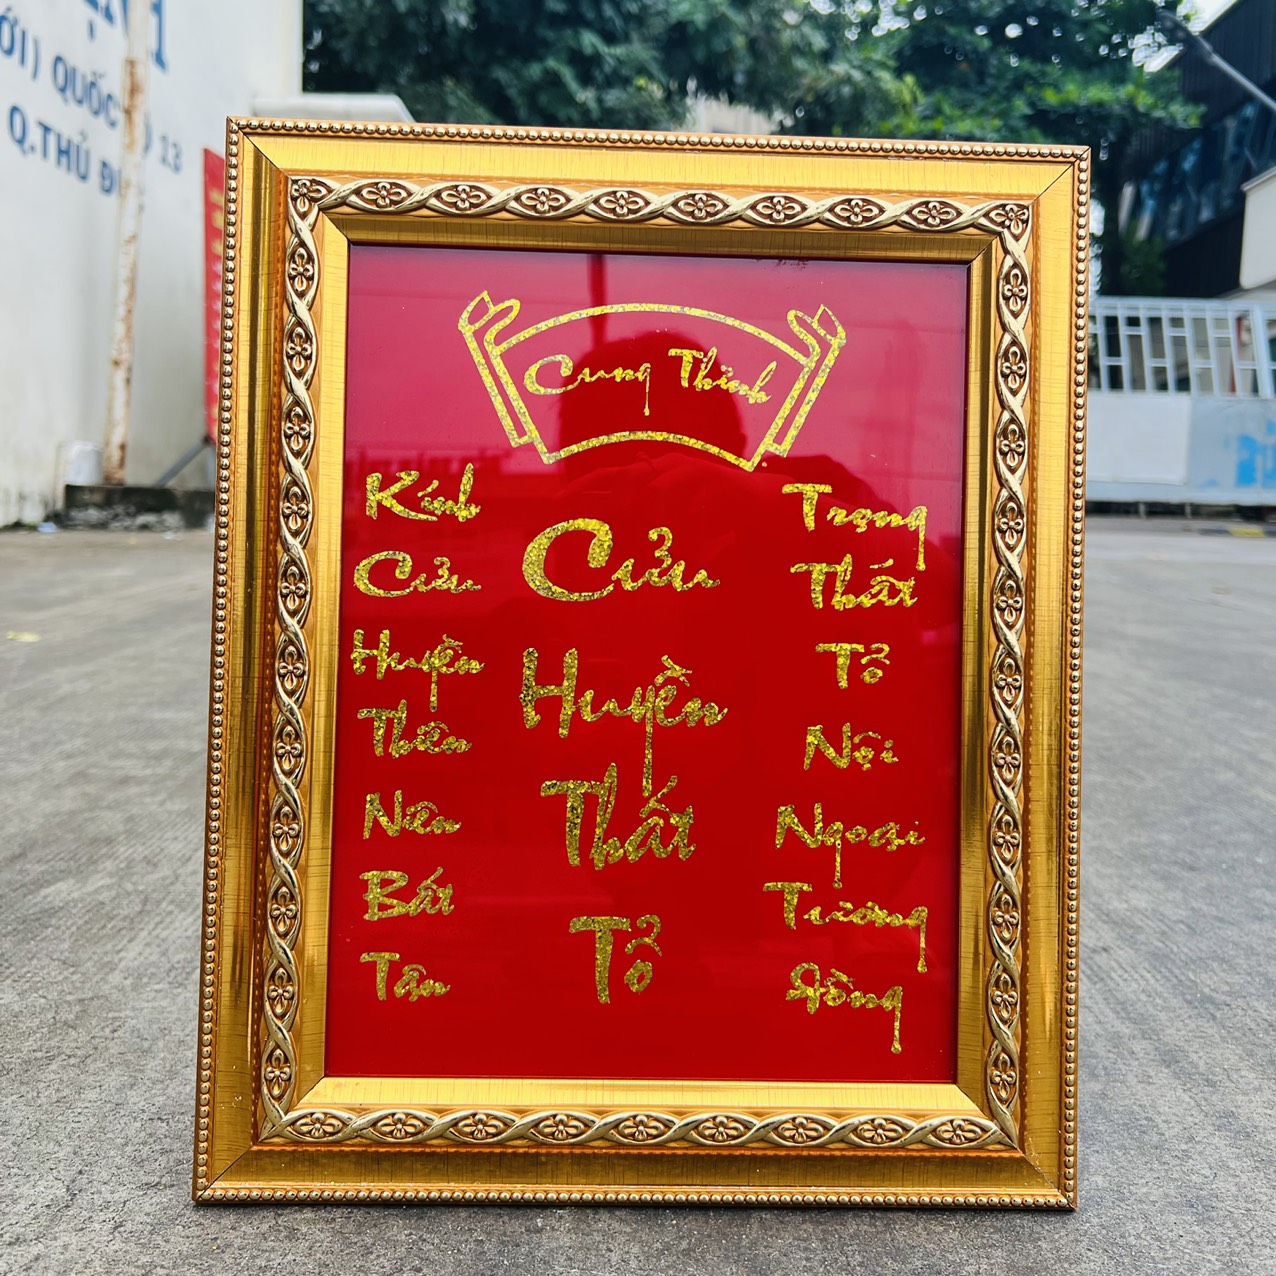 ỚI) QUỐC
13
Q.THỦ Đ
Cung Thỉnh
Kính
Cửu
Huyền
Thiên
Niên
Bất
Tận
Cửu
Huyền
Thất
Tổ
Trọng
Thất
Tổ
Nội
Ngoại
Tường
Đồng